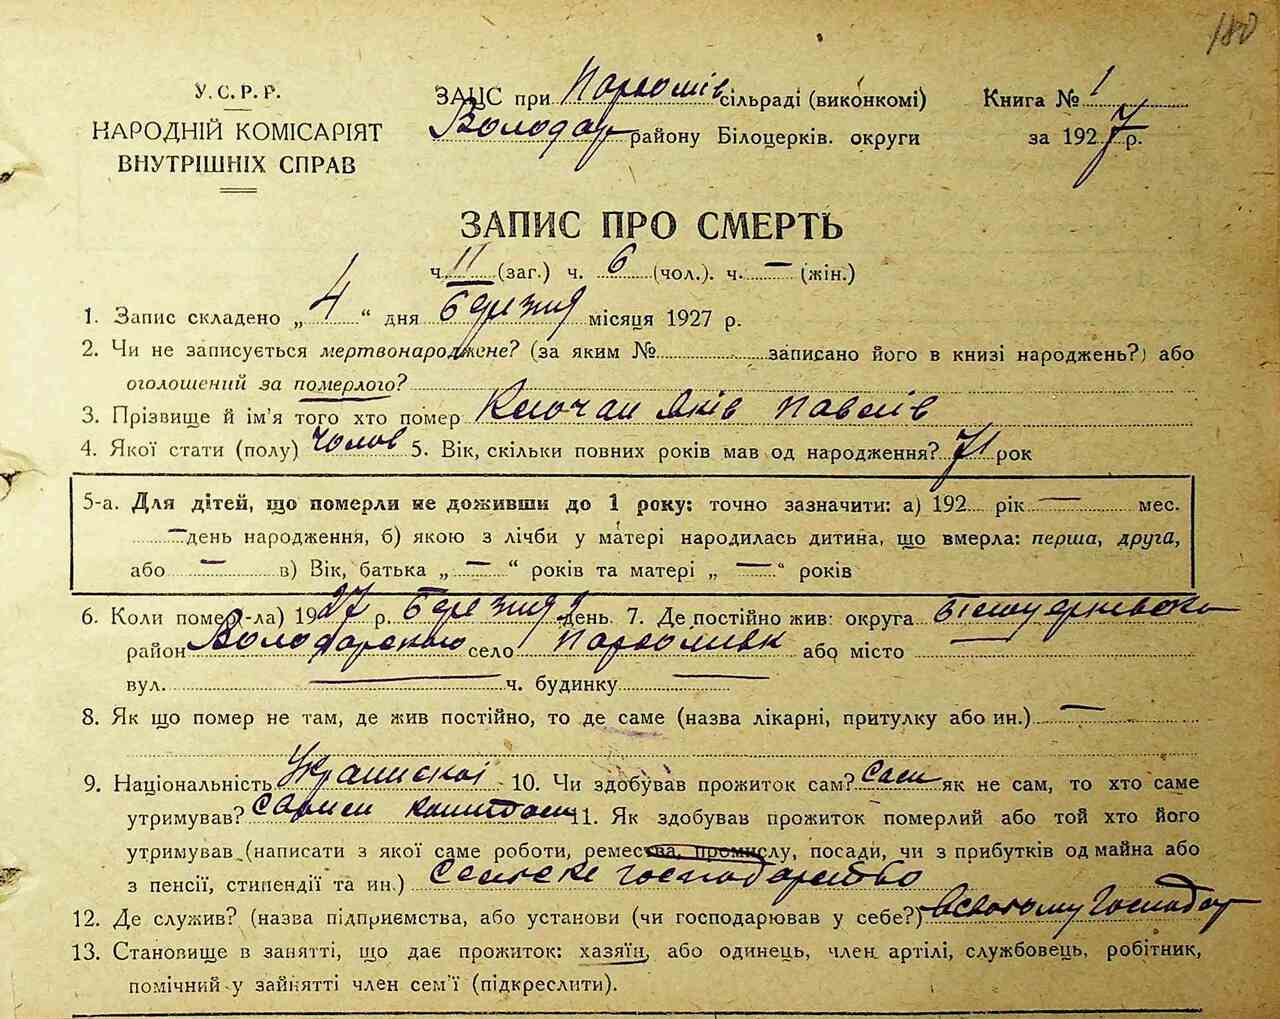 180
У.С.Р.Р.
НАРОДНІЙ КОМІСАРІЯТ
ВНУТРІШНІХ СПРАВ
ЗАГС при Пархомів сільраді (виконкомі)
Володар району Білоцерків. округи
Книга № 1
за 1927 р.
ЗАПИС ПРО СМЕРТЬ
ч. 11 (заг.) ч. 6 (чол.). ч. — (жін.)
1. Запис складено „ 4 “ дня березня місяця 1927 р.
2. Чи не записується мертвонароджене? (за яким № записано його в книзі народжень?) або
оголошений за померлого?
3. Прізвище й ім'я того хто помер Ключан Яків Павлів
4. Якої стати (полу) чолов 5. Вік, скільки повних років мав од народження? 71 рок
5-а. Для дітей, що померли не доживши до 1 року: точно зазначити: а) 192 рік — мес.
— день народження, б) якою з лічби у матері народилась дитина, що вмерла: перша, друга,
або — в) Вік, батька „ — “ років та матері „ — “ років
6. Коли помер(-ла) 1927 р. березня день. 7. Де постійно жив: округа
район Володарського село Пархомівк або місто
вул. — ч. будинку —
8. Як що помер не там, де жив постійно, то де саме (назва лікарні, притулку або ин.) —
9. Національність Украинскої 10. Чи здобував прожиток сам? Сам як не сам, то хто саме
утримував? 11. Як здобував прожиток померлий або той хто його
утримував (написати з якої саме роботи, ремества, промислу, посади, чи з прибутків од майна або
з пенсії, стипендії та ин.) Сельске господарство
12. Де служив? (назва підприємства, або установи (чи господарював у себе?) всвоєму господар
13. Становище в занятті, що дає прожиток: хазяїн, або одинець, член артілі, службовець, робітник,
помічний у зайнятті член сем'ї (підкреслити).